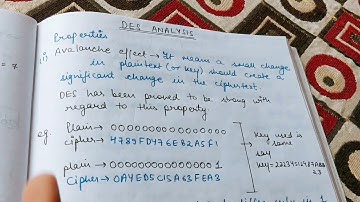 DES ANALYSIS
Properties
(i) Avalanche effect → It means a small change
in plaintext (or key) should create a
significant change in the ciphertext.
DES has been proved to be strong with
regard to this property
eg. Plain → 0000000000000000
Cipher → 4789FD476E82A5F1
Key used is
same
say
plain → 0000000000000001
Cipher → 0A4ED5C15A63FEA3